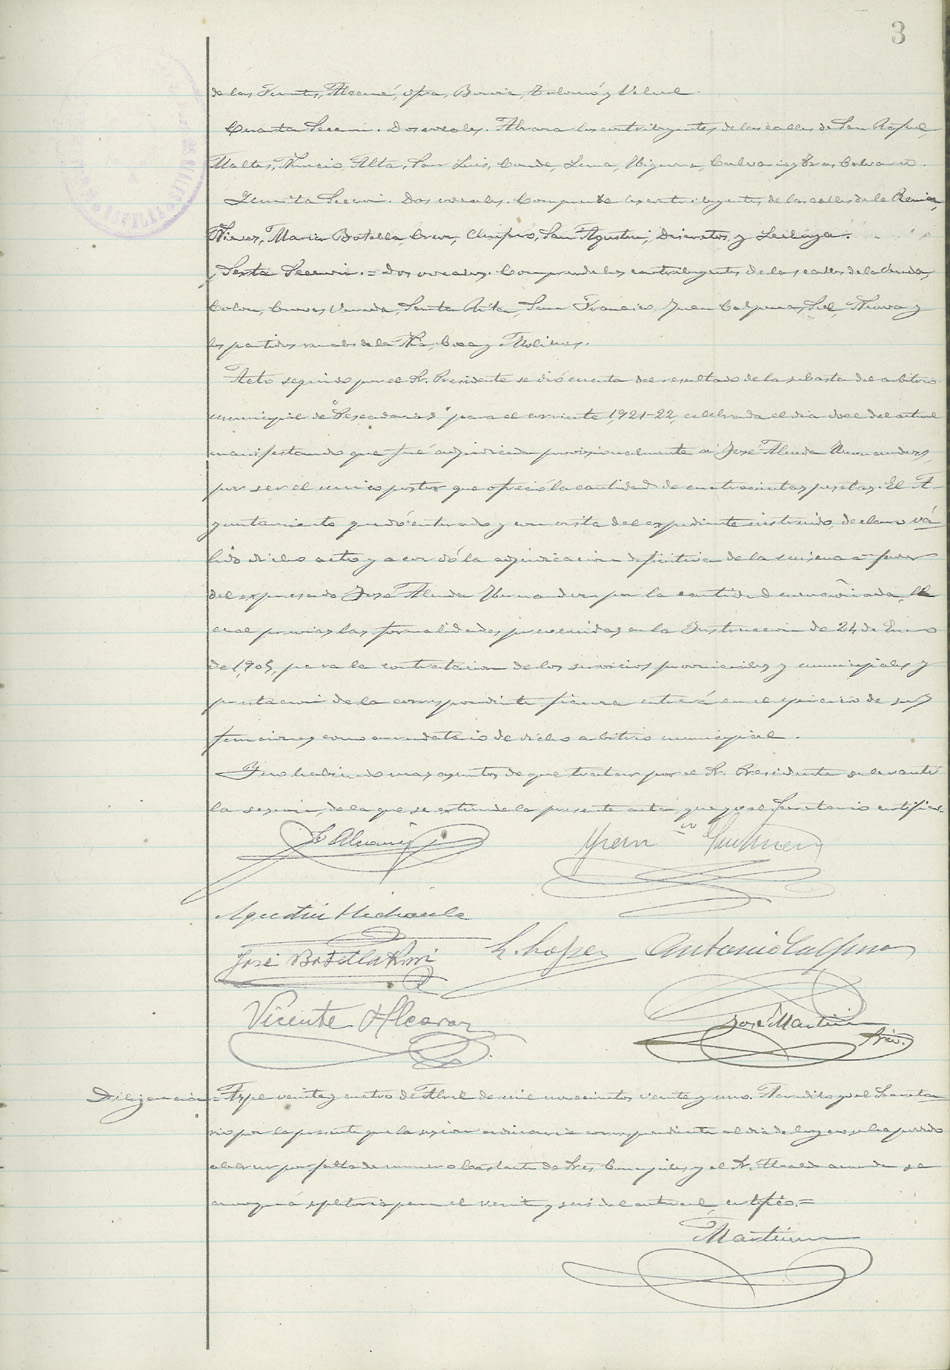 3
de las Fuentes, Alcaná, Opa, Barvia, y Velluel.
Cuarta Sección. Dos vocales. Abraza los contribuyentes de las calles de San Rafael
Maltés, Nuncio, Alta, San Luis, Conde, Luna, Higuera, Calvario y Tras Calvario.
Quinta Sección. Dos vocales. Comprende los contribuyentes de las calles de la Reina,
Nieves, María Botella, Cruz, Chapiro, San Agustín, Discretos y Lechuza.
Sexta Sección. = Dos vocales. Comprende los contribuyentes de las calles de la Vereda,
Colón, Cuevas Vereda, Santa Rita, San Francisco, Juan Calpena, Sol, Nueva y
los partidos rurales de la Coca y Molinos.
Acto seguido por el Sr. Presidente se dió cuenta del resultado de la subasta del arbitrio
municipal de "Pescaderías" para el corriente 1921-22, celebrada el día doce del actual
manifestando que fué adjudicada provisionalmente a José Hernández,
por ser el único postor que ofreció la cantidad de cuatrocientas pesetas. El A-
yuntamiento quedó enterado y con vista del expediente instruido, declaró vá-
lido dicho acto y acordó la adjudicación definitiva de la misma a favor
del expresado José Hernández por la cantidad mencionada, el
cual previas las formalidades prevenidas en la Instrucción de 24 de Enero
de 1,905, para la contratación de los servicios provinciales y municipales y
prestación de la correspondiente fianza entrará en el ejercicio de sus
funciones como arrendatario de dicho arbitrio municipal.
Y no habiendo mas asuntos de que tratar por el Sr. Presidente se levantó
la sesión, de la que se extiende la presente acta, que yo el Secretario certifico.
Agustín
José Botella L. López Antonio Calpena
Vicente Alcaraz José Martínez
Srio.
Diligencia = Aspe veinte y cuatro de Abril de mil novecientos veinte y uno. Acredito yo el Secreta-
rio por la presente que la sesión ordinaria correspondiente al día de hoy no se ha podido
celebrar por falta de número bastante de Sres. Concejales y el Sr. Alcalde acuerda se
convoque supletoria para el veinte y seis del actual, certifico. =
Martínez